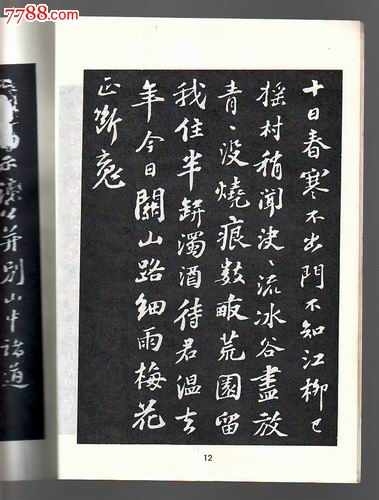 7788.com
中国收藏热线
十日春寒不出門不知江柳已
搖村稍聞決〻流冰谷盡放
青〻沒燒痕數畝荒園留
我住半缾濁酒待君溫去
年今日關山路細雨梅花
正斷魂
并別山中諸道
12